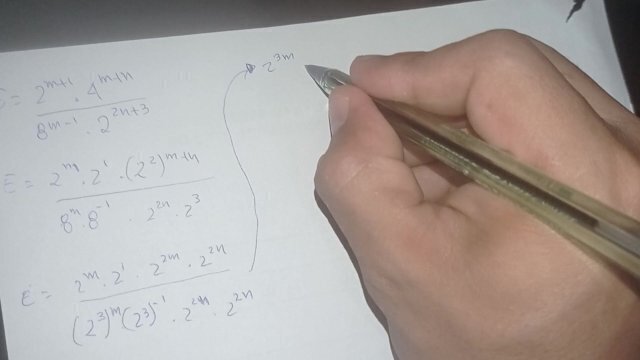 E = 2^{m+1} · 4^{m+n} / 8^{m-1} · 2^{2n+3}
E = 2^m · 2^1 · (2^2)^{m+n} / 8^m · 8^{-1} · 2^{2n} · 2^3
E = 2^m · 2^1 · 2^{2m} · 2^{2n} / (2^3)^m (2^3)^{-1} · 2^{2n} · 2^{2n}
2^{3m}